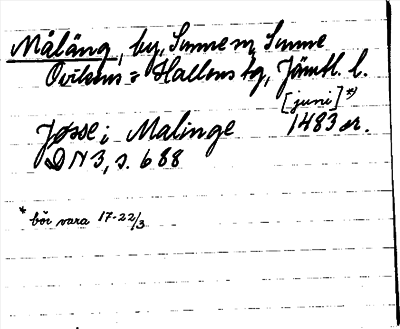 Måläng, by, Sunne sn, Sunne
Oviksns o Hallens tg, Jämtl. l.
[juni]*)
Jösse i Malinge 1483 or.
DN 3, s. 688
* bör vara 17-22/3